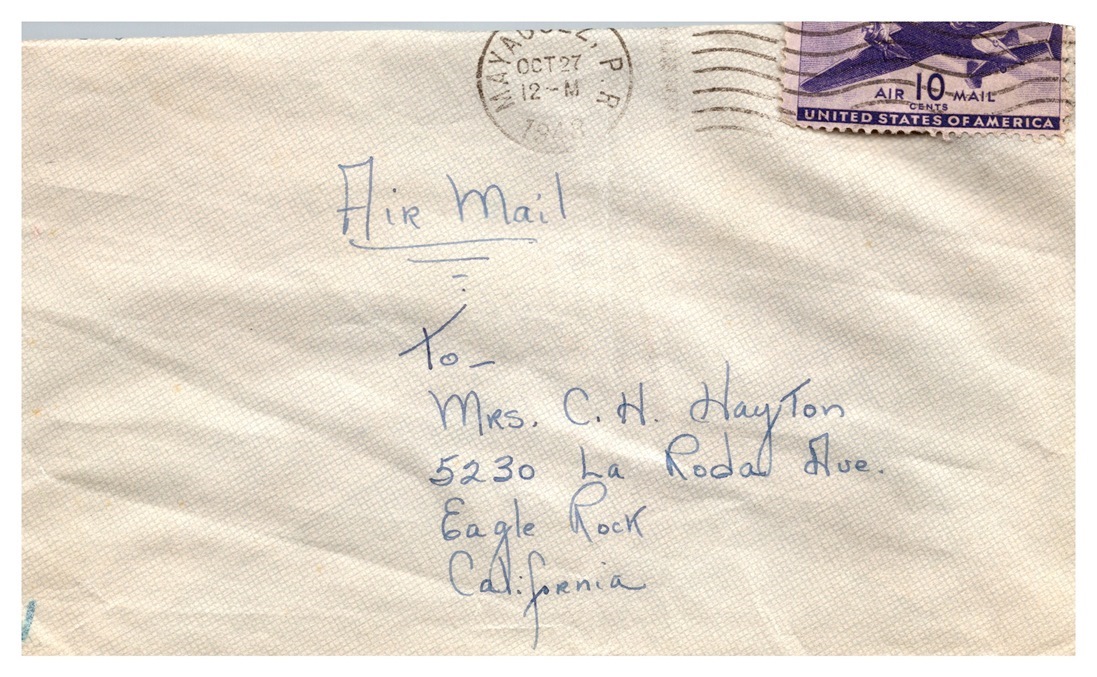 MAYAGUEZ, P.R.
OCT 27
12-M
1943
AIR 10 MAIL
CENTS
UNITED STATES OF AMERICA
Air Mail
To-
Mrs. C. H. Hayton
5230 La Roda Ave.
Eagle Rock
California